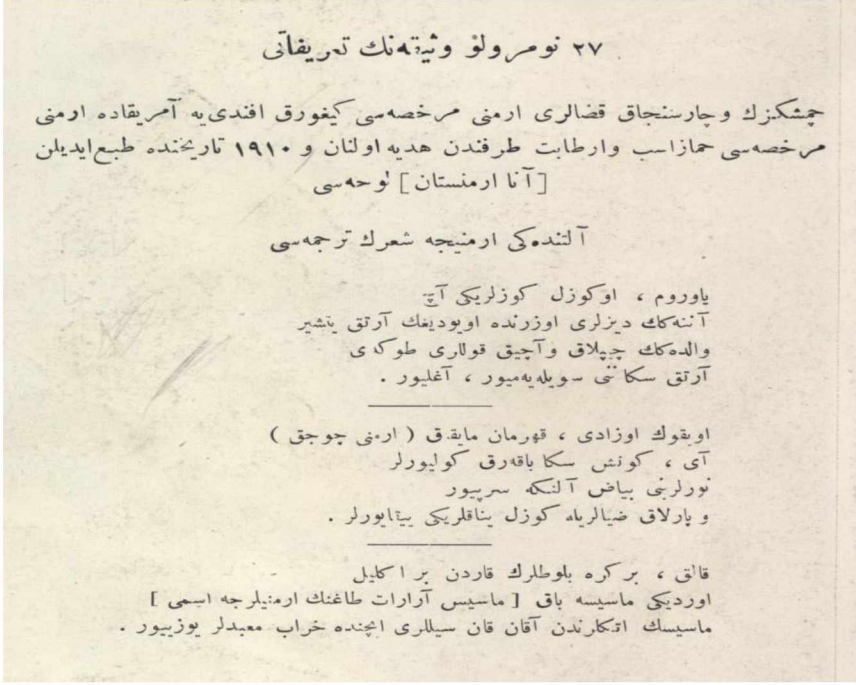 ٢٧ نومرولو وثيقه‌نك تعريفاتى
چمشكزك و چارسنجاق قضالرى ارمنى مرخصه‌سى كيغورق افندى‌يه آمريقاده ارمنى
مرخصه‌سى حمازاسب وارطابت طرفندن هديه اولنان و ١٩١٠ تاريخنده طبع ايديلن
[ آنا ارمنستان ] لوحه‌سى
آلتنده‌كى ارمنيجه شعرك ترجمه‌سى
ياوروم ، او كوزل كوزلريكى آچ
آننه‌كك ديزلرى اوزرنده اويوديغك آرتق يتشير
والده‌كك چيپلاق و آچيق قوللرى طوكدى
آرتق سكا ننى سويله‌يه‌ميور ، آغليور .
اويقوك اوزادى ، قهرمان مايقق ( ارمنى چوجق )
آى ، كونش سكا باقه‌رق كوليورلر
نورلرينى بياض آلنكه سرپيور
و پارلاق ضيالريله كوزل يناقلريكى ييقايورلر .
قالق ، بر كره بلوطلرك قاردن بر اكليل
اورديكى ماسيسه باق [ ماسيس آرارات طاغنك ارمنيلرجه اسمى ]
ماسيسك اتكلرندن آقان قان سيللرى ايچنده خراب معبدلر يوزييور .